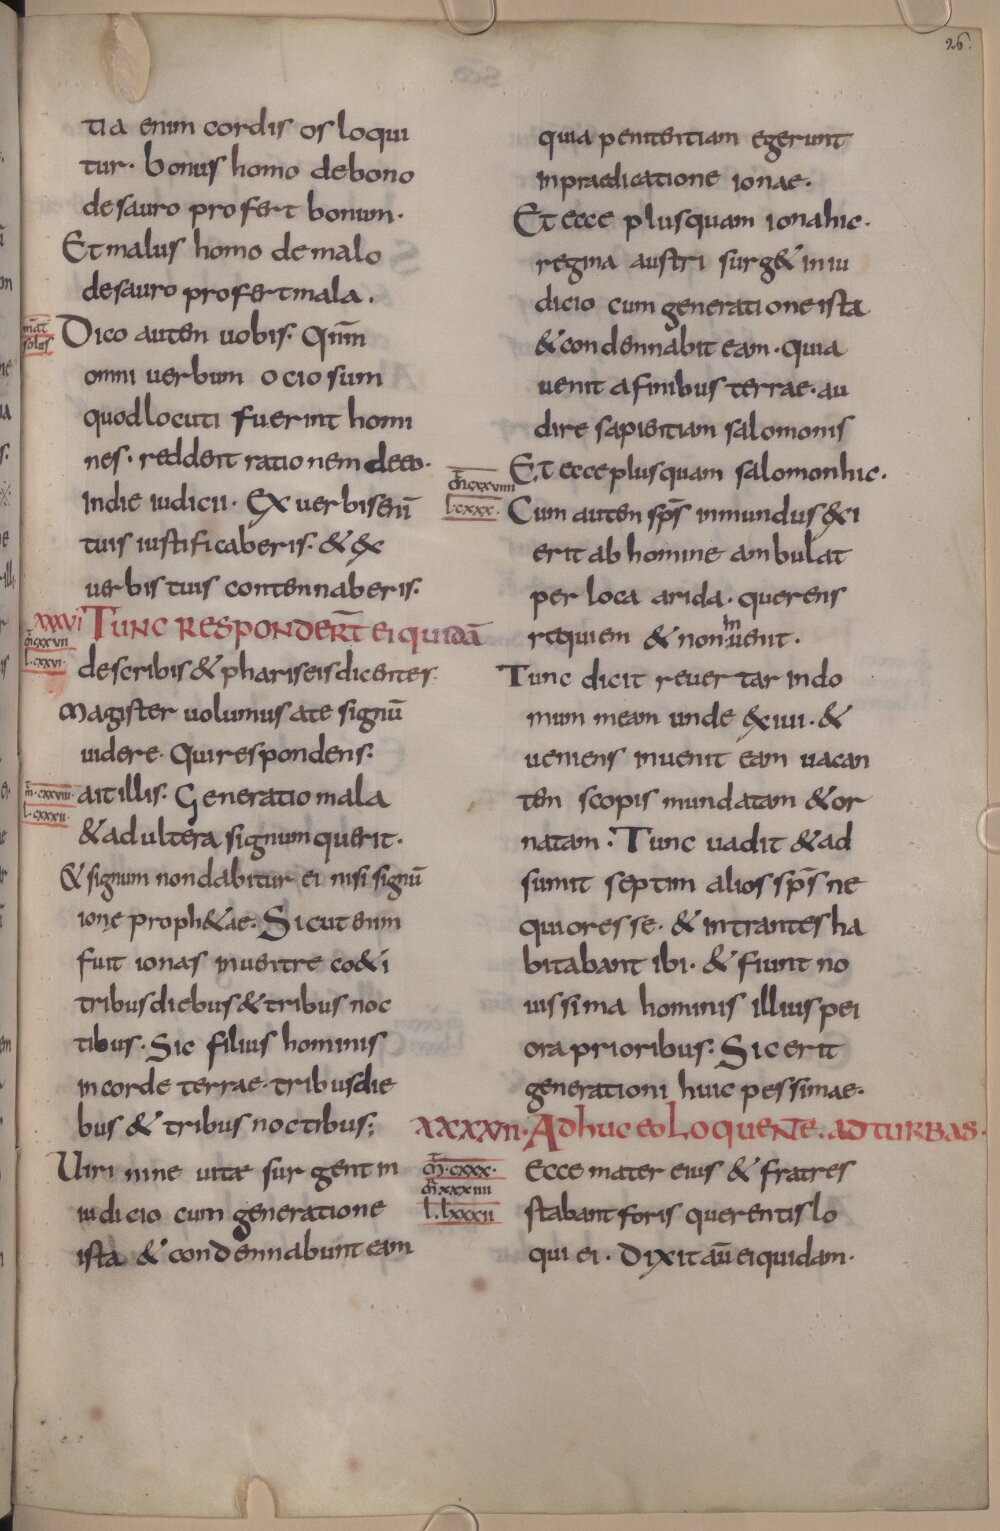 26.
tia enim cordis os loqui
tur. bonus homo de bono
desauro profert bonum.
Et malus homo de malo
desauro profert mala.
māt
solus
Dico autem uobis. Qnm̄
omni uerbum ociosum
quod locuti fuerint homi
nes. reddent rationem deeo.
in die iudicii. Ex uerbis enī
tuis iustificaberis. & ex
uerbis tuis contennaberis.
xxxvi Tunc respondert̄ ei quidā
m̄ cxxvii
l. cxxvi
de scribis & phariseis dicentes.
Magister uolumus a te signū
uidere. Qui respondens.
m̄. cxxviii
l. cxxxii
ait illis. Generatio mala
& adultera signum querit.
& signum non dabitur ei nisi signū
ione proph&ae. Sicut enim
fuit ionas in uentre co&i
tribus diebus & tribus noc
tibus. Sic filius hominis
in corde terrae. tribus die
bus & tribus noctibus;
Uiri nine uitae surgent in
iudicio cum generatione
ista & condennabunt eam
quia penitentiam egerunt
in praedicatione ionae.
Et ecce plus quam iona hic.
regina austri surg& in iu
dicio cum generatione ista
& condennabit eam. quia
uenit a finibus terrae. au
dire sapientiam salomonis
Et ecce plus quam salomon hic.
m̄ cxxviiii
l. cxxx.
Cum autem sp̄s inmundus exi
erit ab homine ambulat
per loca arida. querens
requiem & non inuenit.
Tunc dicit reuertar in do
mum meam unde exiui. &
ueniens inuenit eam uacan
tem scopis mundatam & or
natam. Tunc uadit & ad
sumit septim alios sp̄s ne
quiores se. & intrantes ha
bitabant ibi. & fiunt no
uissima hominis illius pei
ora prioribus. Sic erit
generationi huic pessimae.
xxxxvii. Adhuc eo loquente. ad turbas.
m̄. cxxx.
m̄ xxxiiii
l. lxxxii
Ecce mater eius & fratres
stabant foris querentis lo
qui ei. Dixit aū ei quidam.